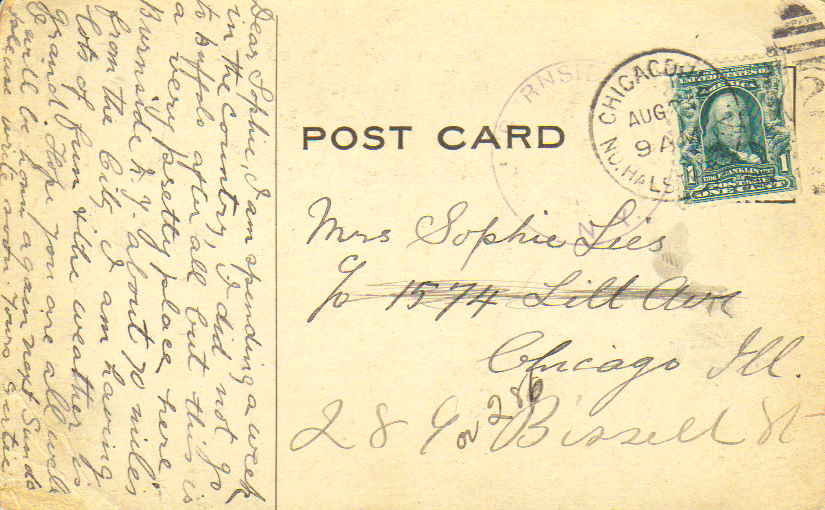 Dear Sophie, I am spending a week
in the country, I did not go
to buffalo after all but this is
a very pretty place here
Burnside N.Y. about 70 miles
from the City I am having
lots of fun & the weather is
grand. Hope you are all well
I will be home again next Sunda
please write soon. Yours Gertie
POST CARD
RNSI
N.Y.
CHICAGO
AUG
9 A
NO. HALS
UNITED STATES OF
AMERICA
FRANKLIN
1 1
ONE CENT
Mrs Sophie Lies
c/o 1574 Lill Ave
Chicago Ill.
289 or 286 Bissell St